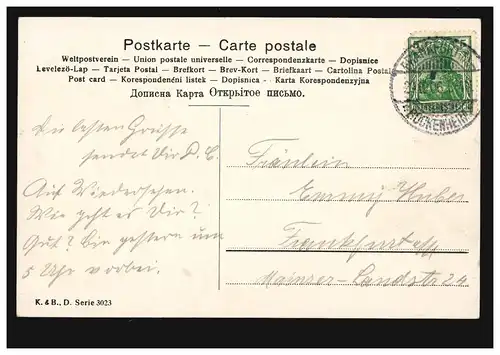 Postkarte – Carte postale
Weltpostverein – Union postale universelle – Correspondenzkarte – Dopisnice
Levelező-Lap – Tarjeta Postal – Brefkort – Brev-Kort – Briefkaart – Cartolina Postale
Post card – Korespondenční lístek – Dopisnica – Karta Korespondenzyjna
Дописна Карта Открытое письмо.
BOCKENHEIM
Die besten Grüsse
sendet Dir
Auf Wiedersehen.
Wie geht es Dir?
Gut? Bin gestern um
5 Uhr vorbei.
Fräulein
Emmy Huber
Frankfurt a/M
Mainzer-Landstr 24
K. & B., D. Serie 3023